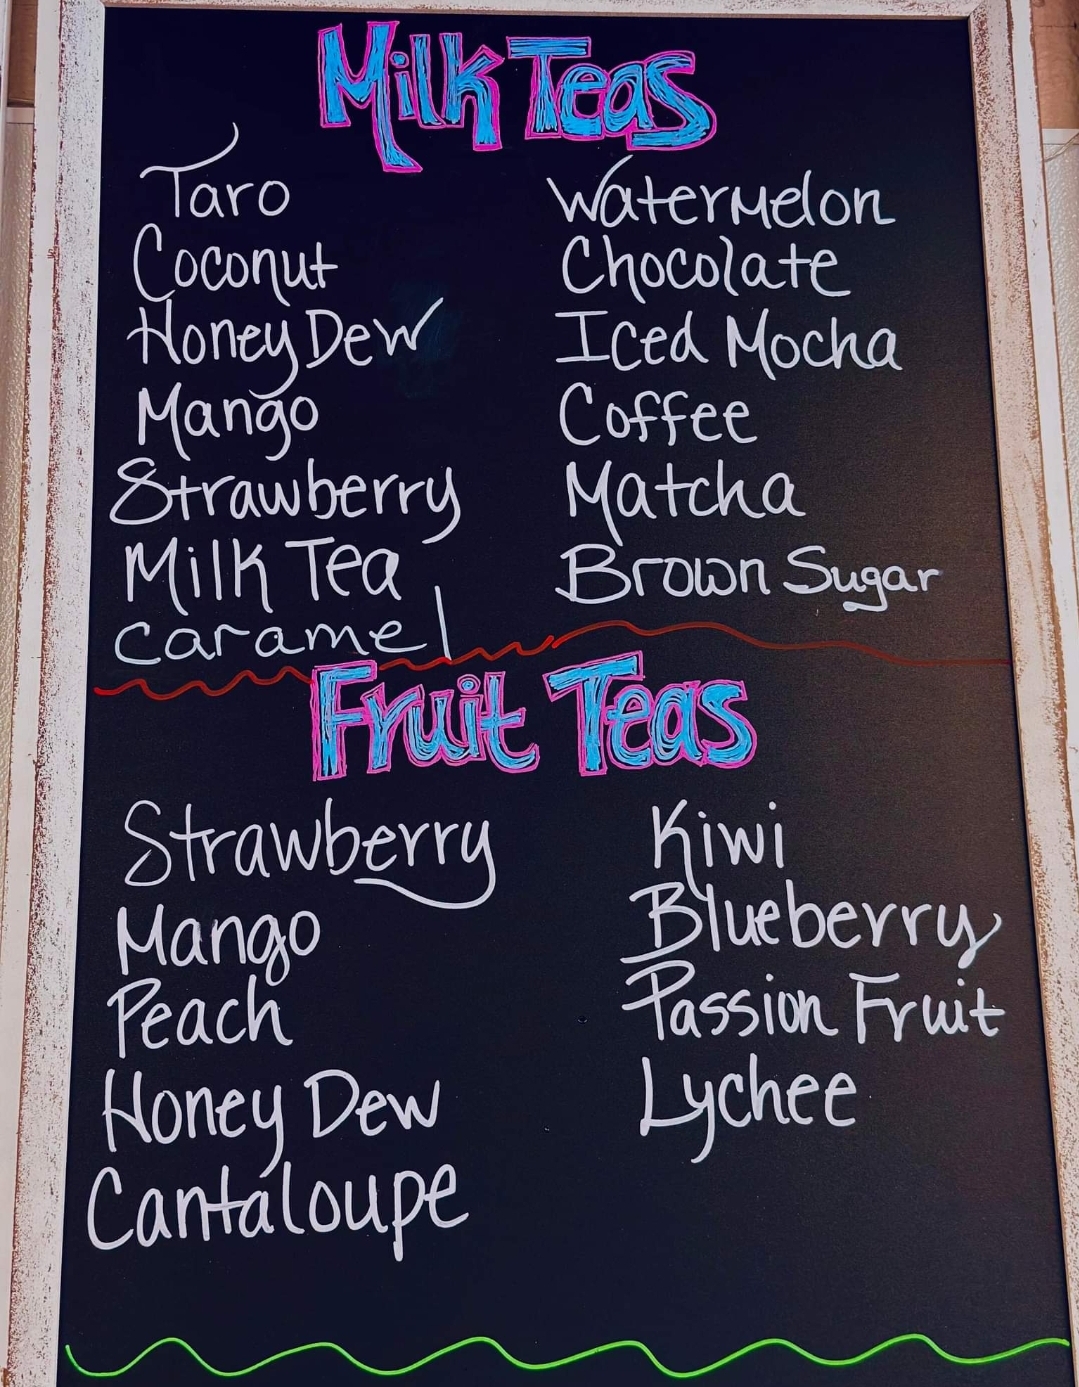 Milk Teas
Taro
Coconut
Honey Dew
Mango
Strawberry
Milk Tea
caramel
Watermelon
Chocolate
Iced Mocha
Coffee
Matcha
Brown Sugar
Fruit Teas
Strawberry
Mango
Peach
Honey Dew
Cantaloupe
Kiwi
Blueberry
Passion Fruit
Lychee